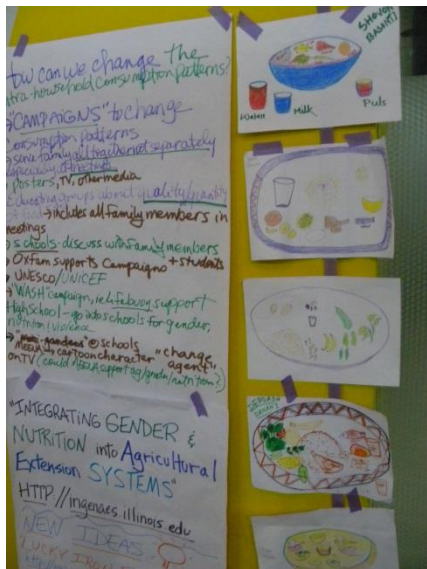 How can we change the
intra-household Consumption patterns?
"CAMPAIGNS" to change
Consumption patterns
→ serve family all together not separately
especially
posters, TV, other media
Educating groups about quality/quantity
of food → includes all family members in
meetings
→ schools - discuss with family members
→ Oxfam supports Campaigns + students
→ UNESCO/UNICEF
→ "WASH" campaign, ie lifebuoy support
High School - go into schools for gender,
nutrition/violence
@ schools
MEENA → cartoon character "change
on TV (could MEENA support ag/gender/nutrition?) agent"
"INTEGRATING GENDER &
NUTRITION into Agricultural
Extension SYSTEMS"
HTTP://ingenaes.illinois.edu
NEW IDEAS
LUCKY IRON
SHOVON
Water
Milk
Puls